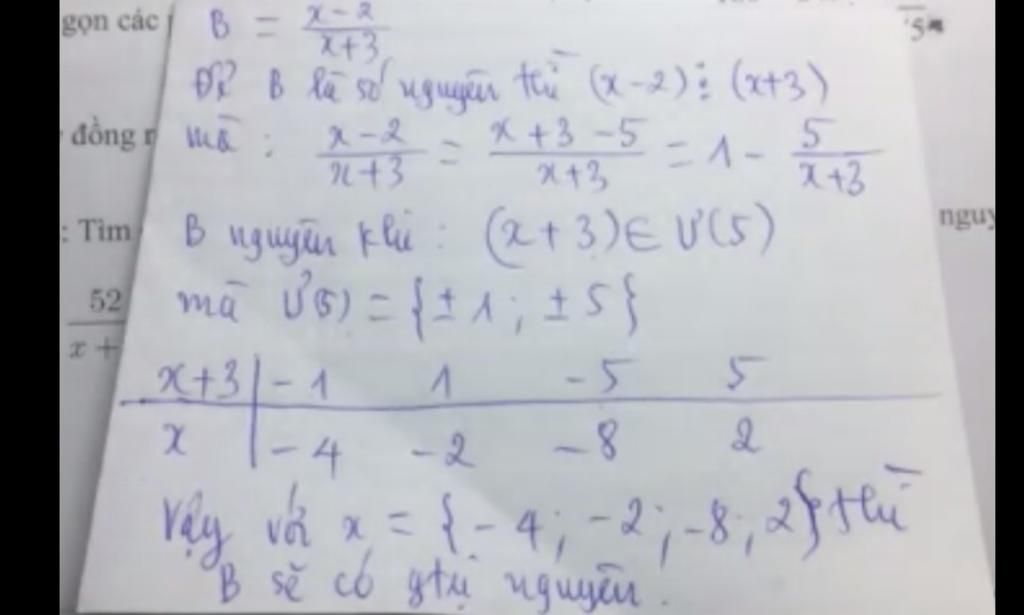 gọn các
5
B = \frac{x-2}{x+3}
Để B là số nguyên thì (x-2) ⋮ (x+3)
đồng
mà : \frac{x-2}{x+3} = \frac{x+3-5}{x+3} = 1 - \frac{5}{x+3}
: Tìm
nguy
B nguyên khi : (x+3) ∈ Ư(5)
52
x +
mà Ư(5) = {±1 ; ±5}
x+3 | -1 1 -5 5
x | -4 -2 -8 2
Vậy với x = {-4 ; -2 ; -8 ; 2} thì
B sẽ có gtrị nguyên.